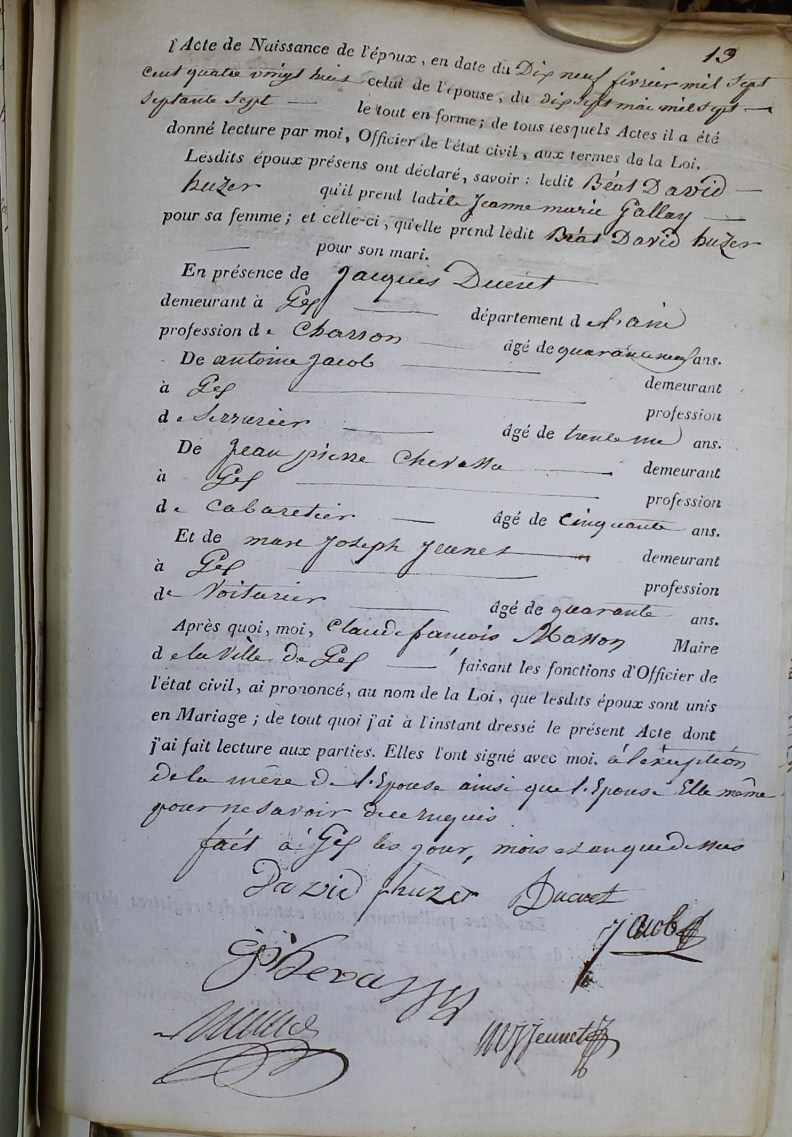 13
l'Acte de Naissance de l'époux, en date du Dix neuf février mil sept
cent quatre vingt huit celui de l'épouse, du dix sept mai mil sept
septante sept le tout en forme; de tous lesquels Actes il a été
donné lecture par moi, Officier de l'état civil, aux termes de la Loi.
Lesdits époux présens ont déclaré, savoir : ledit Béat David
huzer qu'il prend ladite Jeanne marie Gallay
pour sa femme; et celle-ci, qu'elle prend ledit Béat David huzer
pour son mari.
En présence de Jacques Ducret
demeurant à Gex département de l'ain
profession de Charron âgé de quarante neuf ans.
De antoine Jacob demeurant
à Gex profession
de Serrurier âgé de trente ans.
De Jean pierre Chevassu demeurant
à Gex profession
de Cabaretier âgé de cinquante ans.
Et de marc Joseph Jeunet demeurant
à Gex profession
de Voiturier âgé de quarante ans.
Après quoi, moi, Claude francois Masson Maire
de la Ville de Gex faisant les fonctions d'Officier de
l'état civil, ai prononcé, au nom de la Loi, que lesdits époux sont unis
en Mariage; de tout quoi j'ai à l'instant dressé le présent Acte dont
j'ai fait lecture aux parties. Elles l'ont signé avec moi. à l'éxception
de la mère de l'Epouse ainsi que l'Epouse Elle même
pour ne savoir de ce requis
fait à Gex les jour, mois et an que dessus
David huzer Ducret
Jacob
JP Chevassu
MJ Jeunet